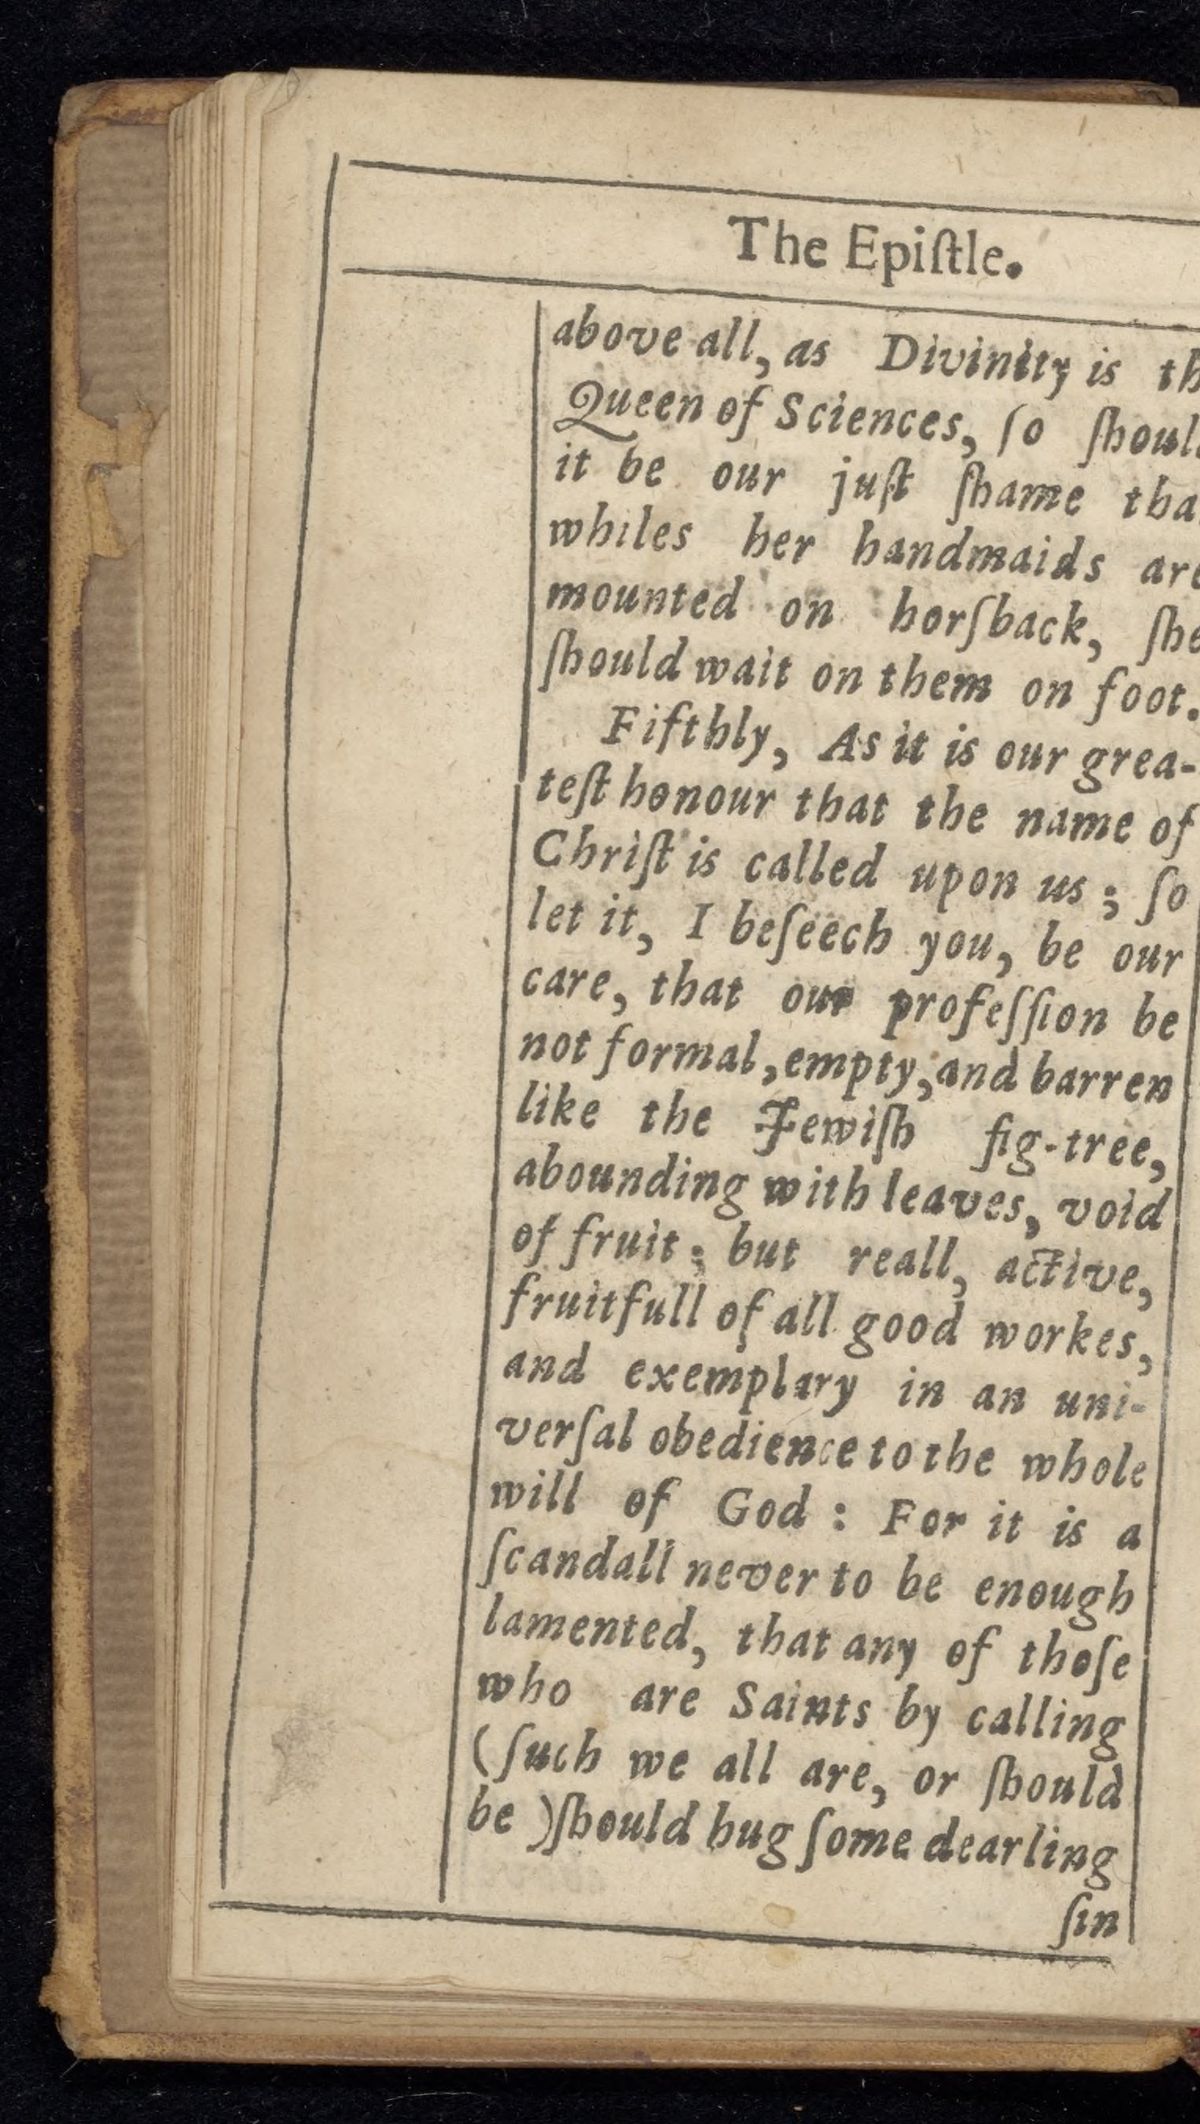 The Epiſtle.
above all, as Divinity is th
Queen of Sciences, ſo ſhoul
it be our juſt ſhame tha
whiles her handmaids are
mounted on horſback, ſhe
ſhould wait on them on foot.
Fifthly, As it is our grea-
teſt honour that the name of
Chriſt is called upon us; ſo
let it, I beſeech you, be our
care, that our profeſſion be
not formal, empty, and barren
like the Jewiſh fig-tree,
abounding with leaves, void
of fruit; but reall, active,
fruitfull of all good workes,
and exemplary in an uni-
verſal obedience to the whole
will of God: For it is a
ſcandall never to be enough
lamented, that any of thoſe
who are Saints by calling
(ſuch we all are, or ſhould
be) ſhould hug ſome dearling
ſin